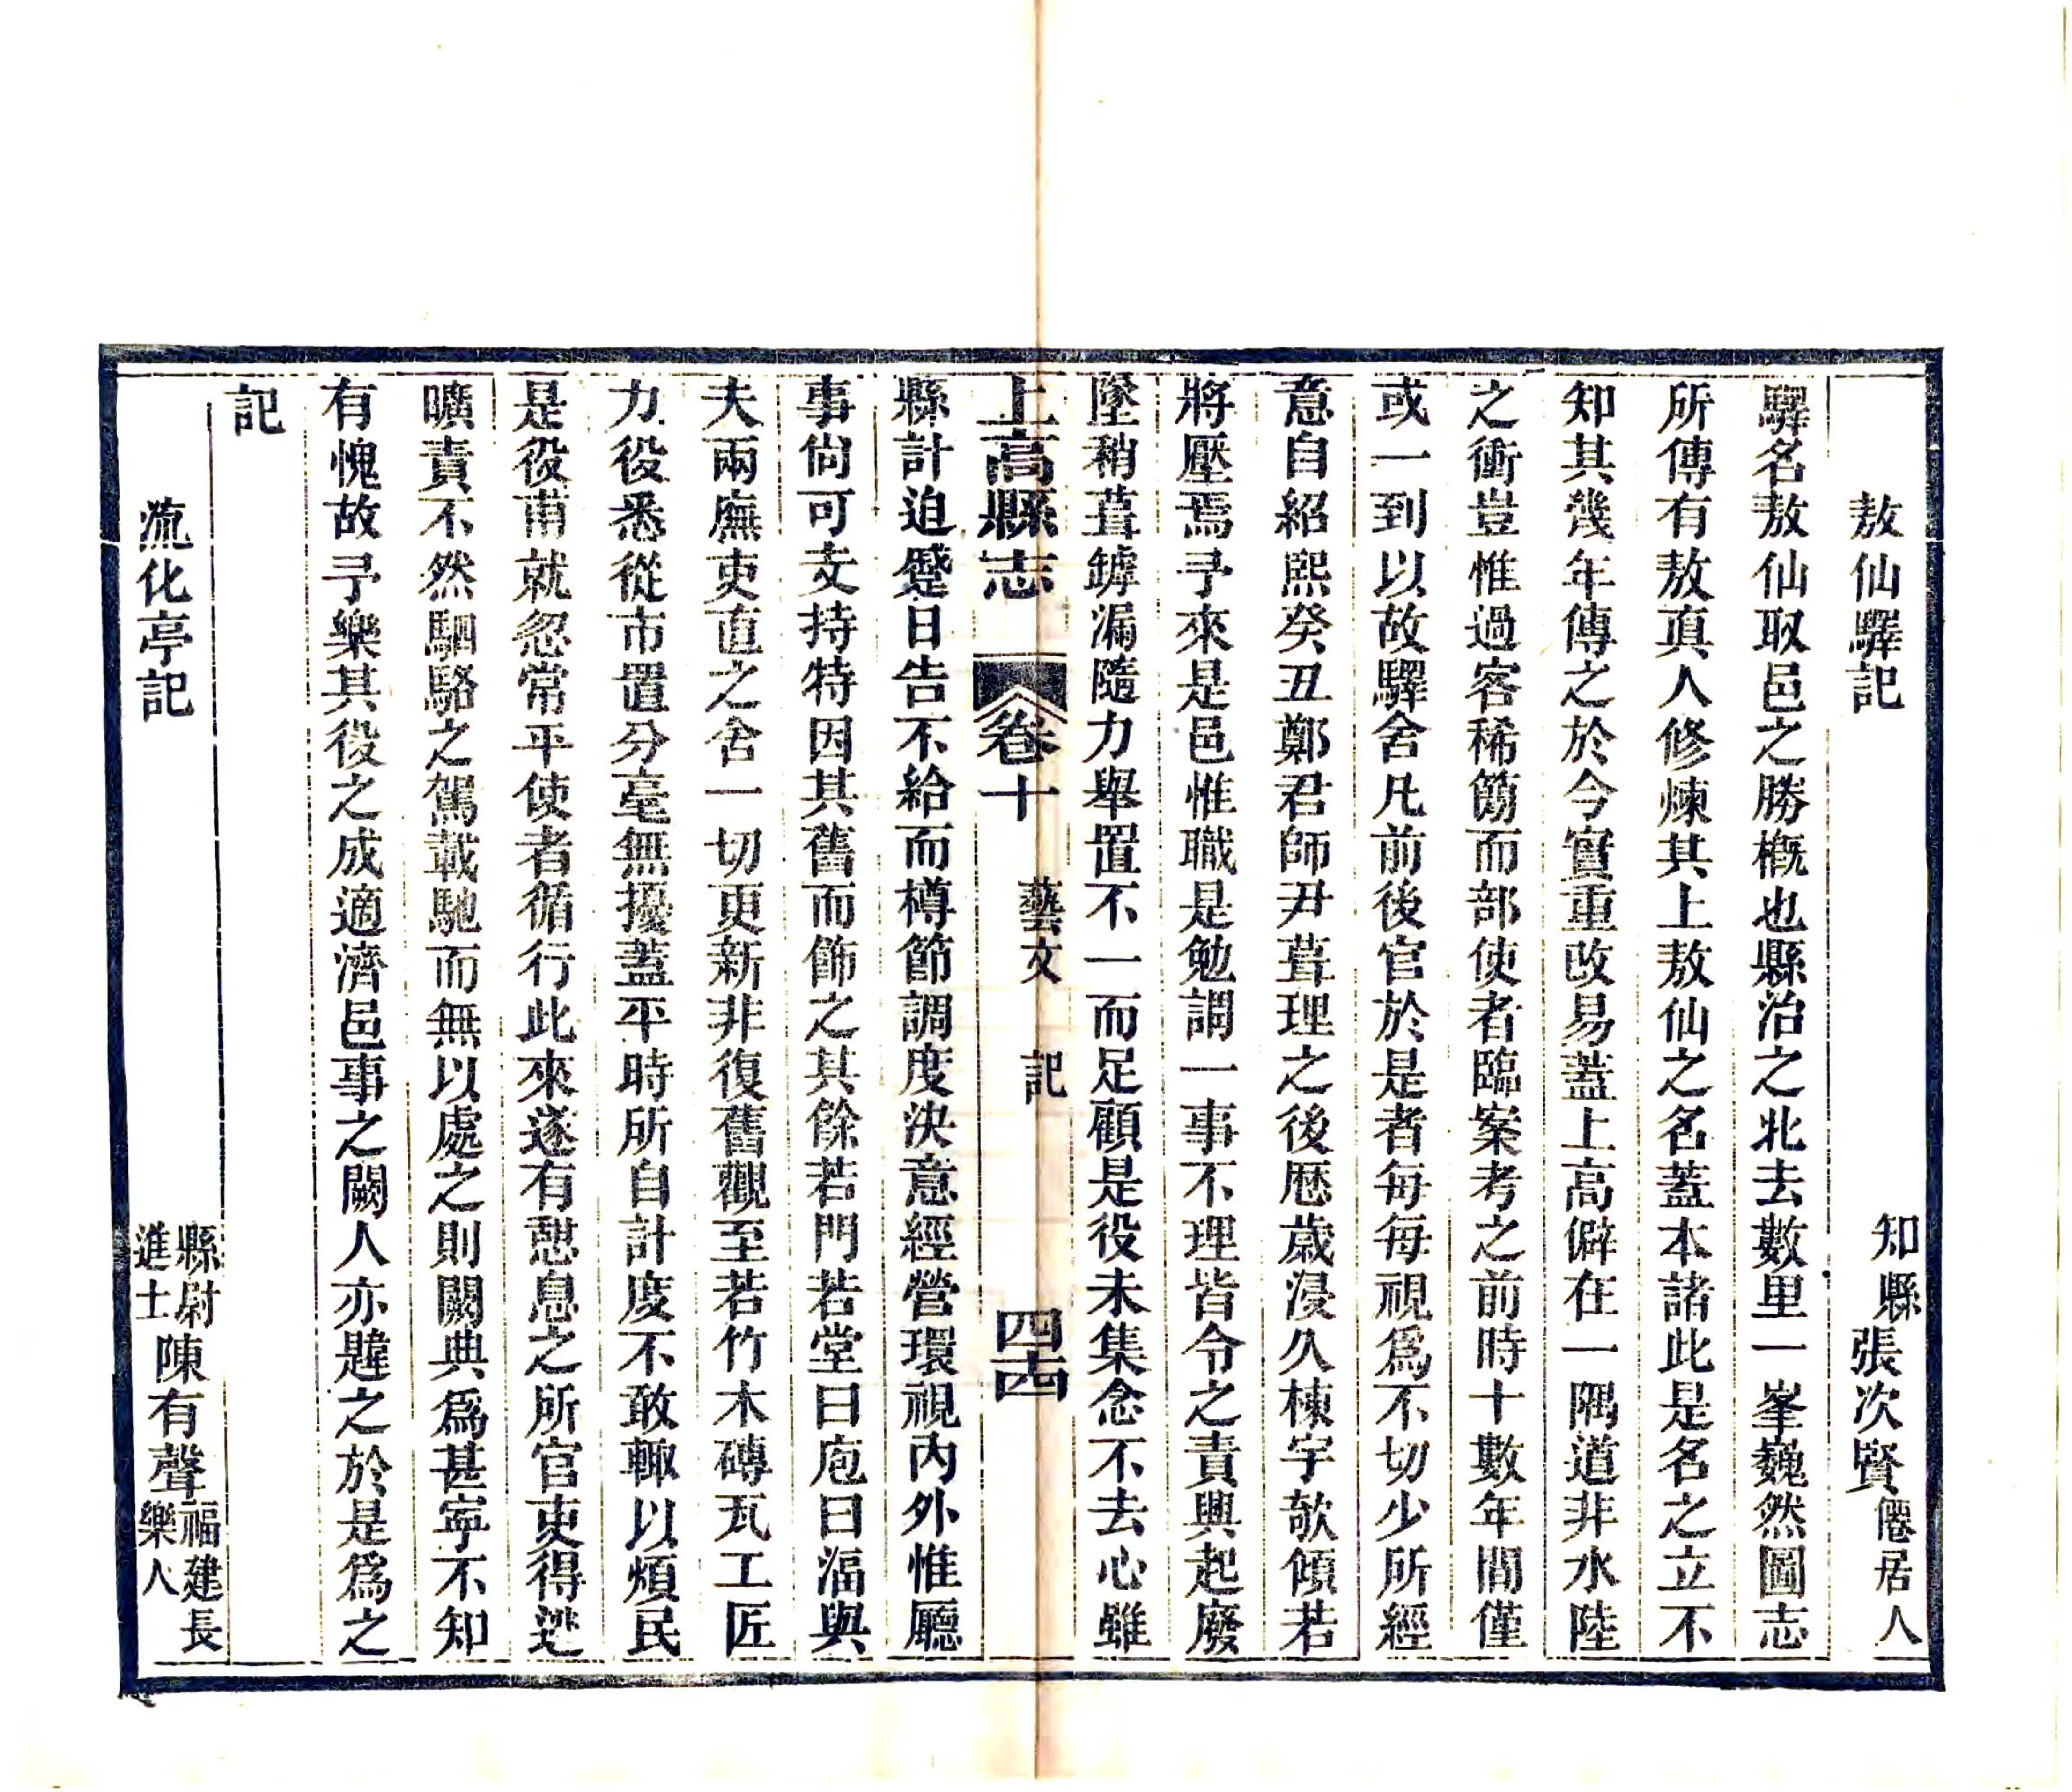 敖仙驛記　知縣張次賢僊居人
驛名敖仙取邑之勝概也縣治之北去數里一峯巍然圖志
所傳有敖眞人修煉其上敖仙之名蓋本諸此是名之立不
知其幾年傳之於今實重改易蓋上高僻在一隅道非水陸
之衝豈惟過客稀簡而部使者臨案考之前時十數年間僅
或一到以故驛舍凡前後官於是者每每視爲不切少所經
意自紹熙癸丑鄭君師尹葺理之後歷歲浸久棟宇欹傾若
將壓焉予來是邑惟職是勉謂一事不理皆令之責興起廢
墜稍葺罅漏隨力舉置不一而足顧是役未集念不去心雖
上高縣志　卷十　藝文　記　四十四
縣計迫蹙日告不給而樽節調度決意經營環視內外惟廳
事尙可支持特因其舊而飾之其餘若門若堂曰庖曰湢與
夫兩廡吏直之舍一切更新非復舊觀至若竹木磚瓦工匠
力役悉從市置分毫無擾蓋平時所自計度不敢輒以煩民
是役甫就忽常平使者循行此來遂有憩息之所官吏得逃
曠責不然駟駱之駕載馳而無以處之則闕典爲甚寧不知
有愧故予樂其役之成適濟邑事之闕人亦韙之於是爲之
記
流化亭記　縣尉進士陳有聲福建長樂人